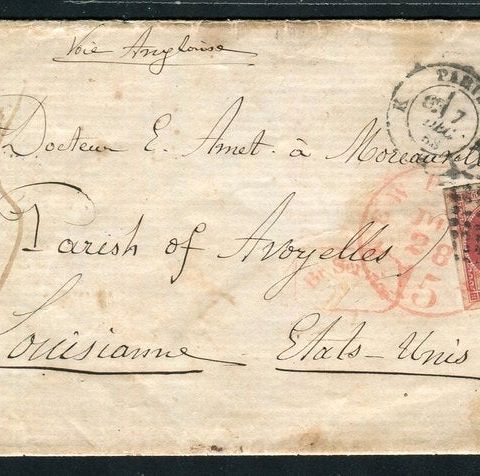 Voie Anglaise
Docteur E. Amet. à Moreauville
Parish of Avoyelles
Louisianne Etats-Unis
PARIS
K 7 DEC.
28
5
Br. Service